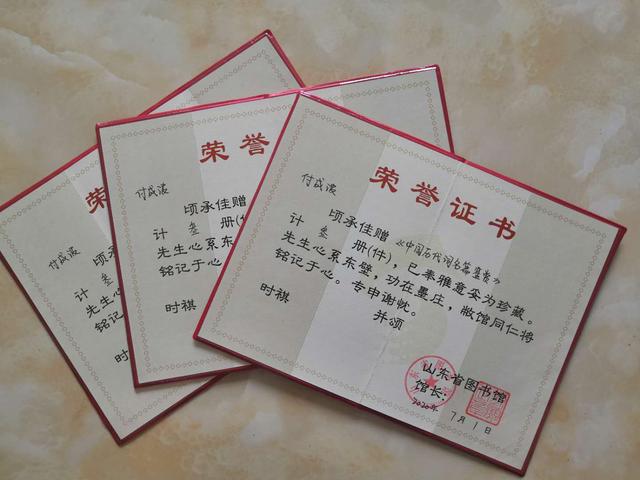 荣誉证书
付成波
顷承佳赠《中国历代词名篇鉴赏》
计叁册(件),已奉雅意妥为珍藏。
先生心系东壁,功在墨庄,敝馆同仁将
铭记于心。专申谢忱。
并颂
时祺
山东省图书馆
馆长:
2020年7月1日
荣誉
付成波
顷承佳赠
计叁册(件
先生心系东
铭记于心
时祺
荣
付成波
顷承
计叁
先生心
铭记于
时